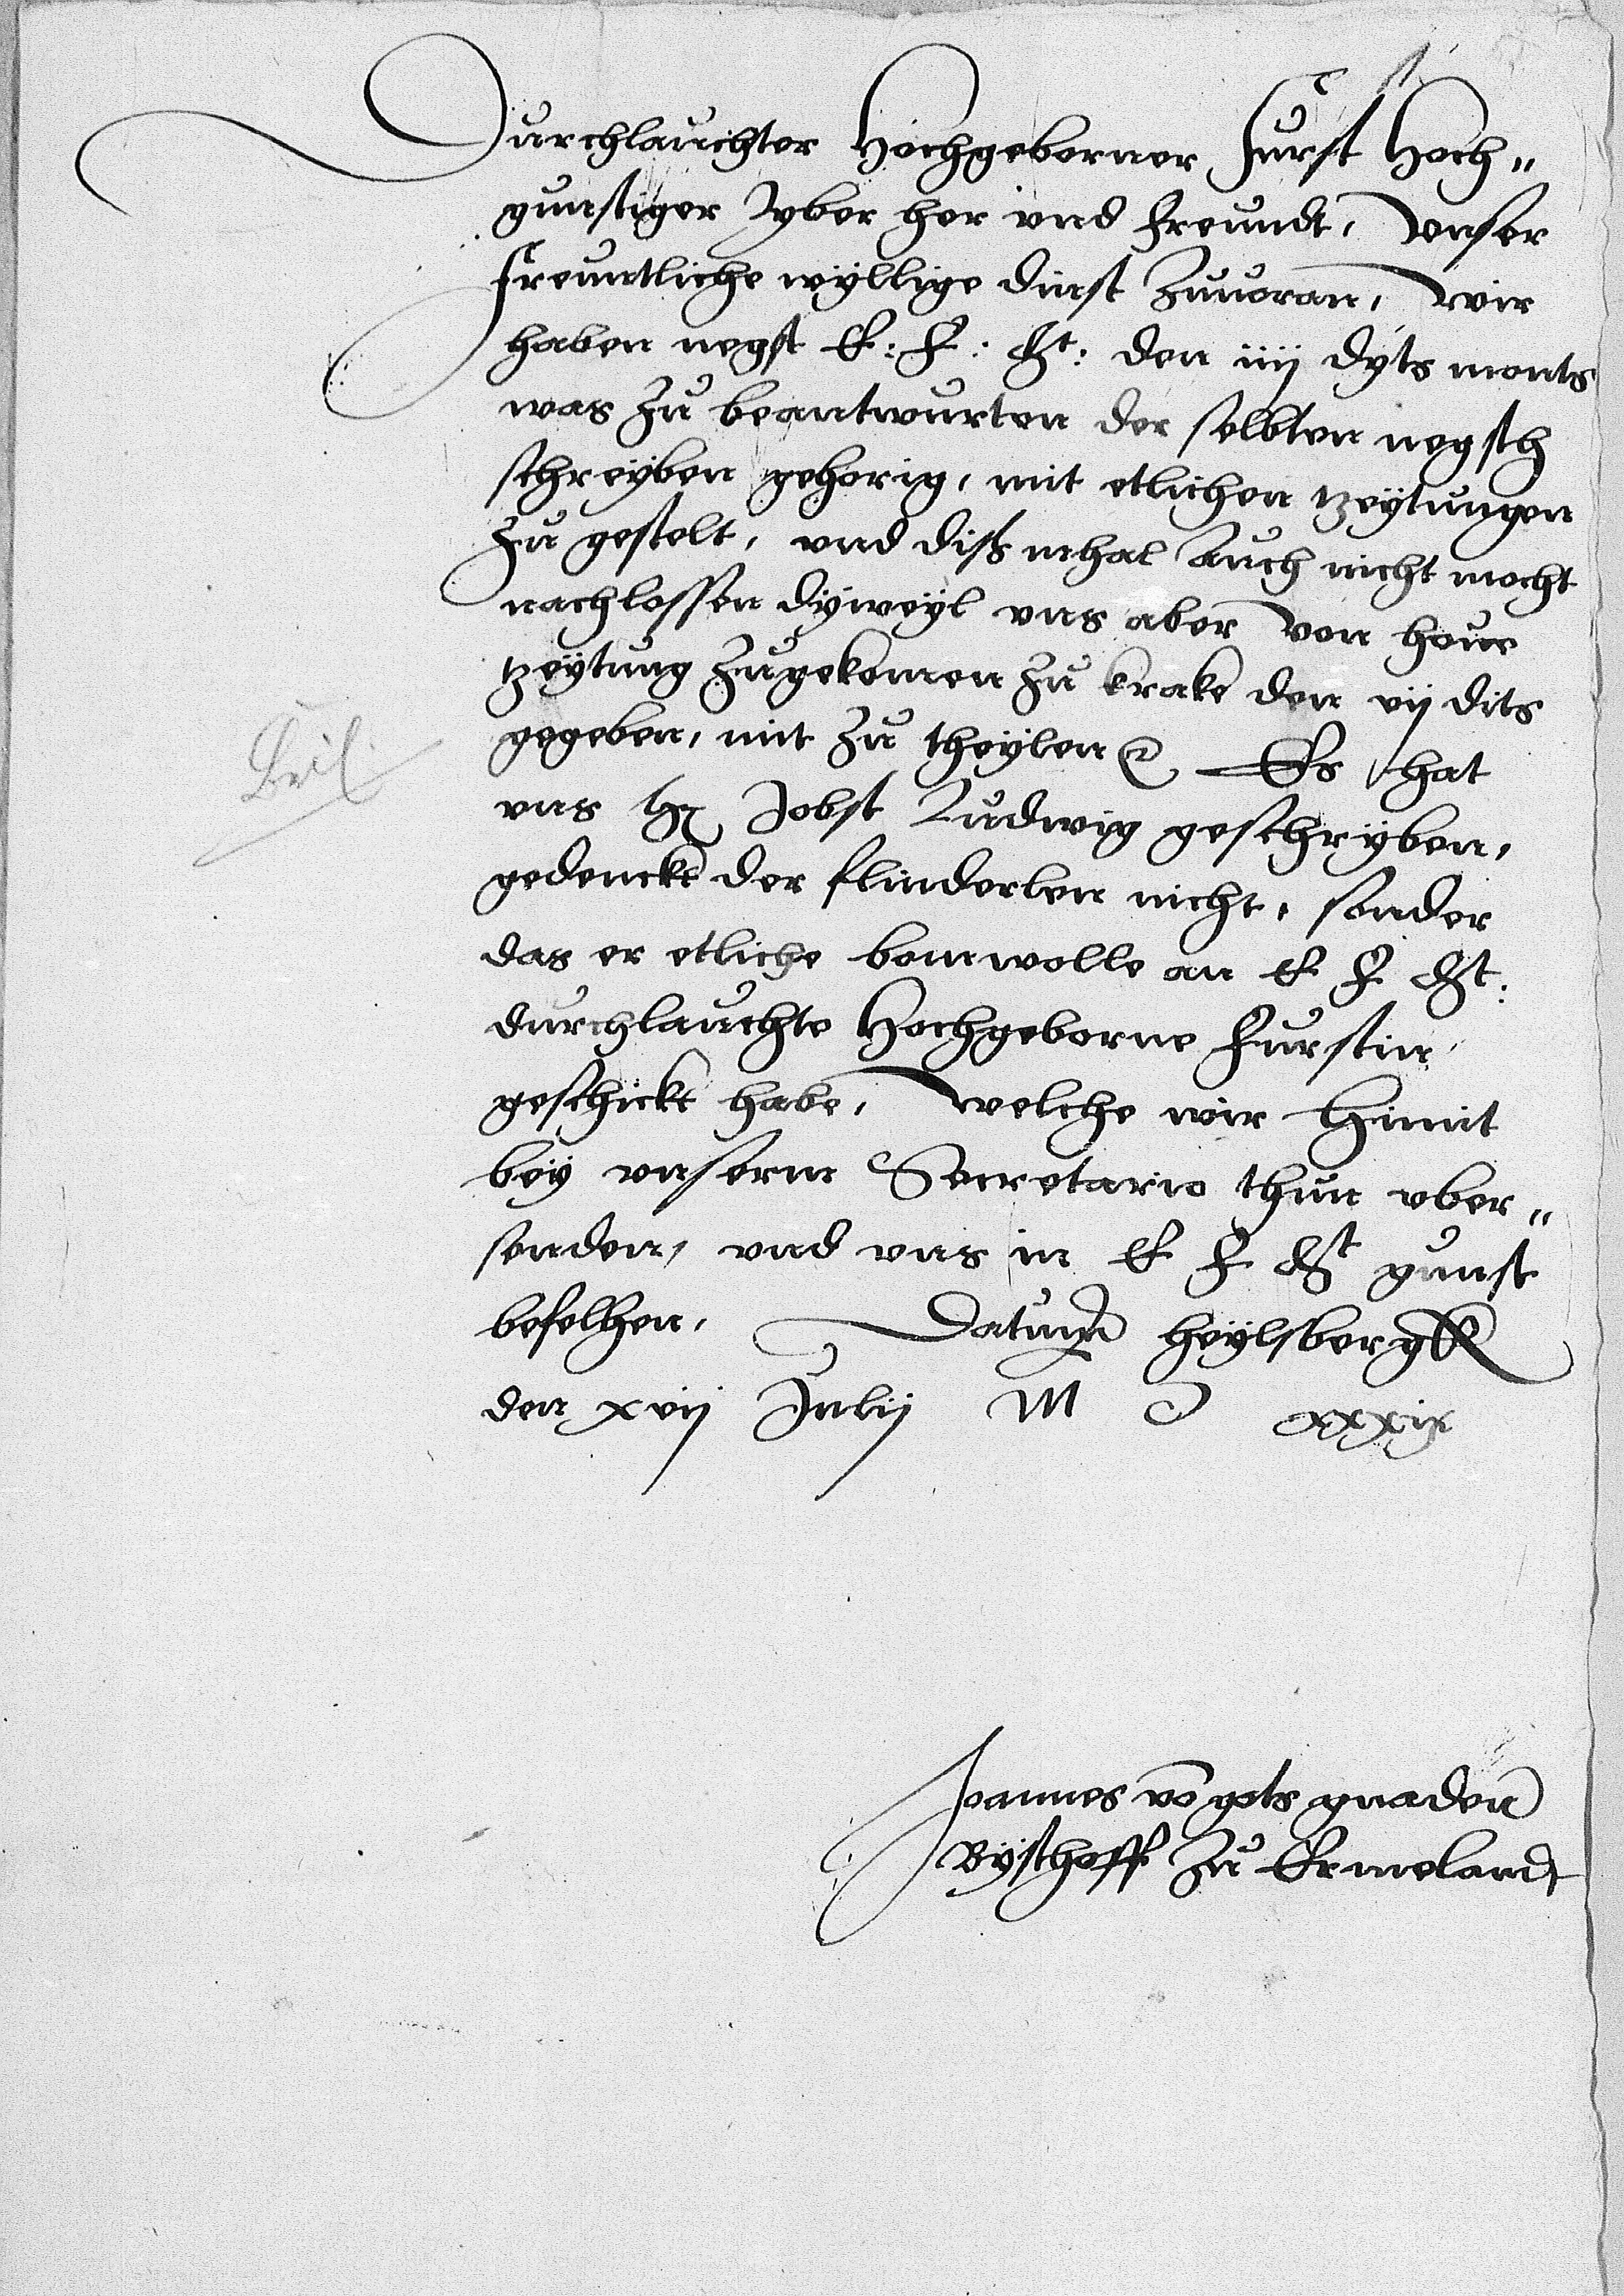 Durchlauchter Hochgeborner Furst Hoch„
gunstiger lyber her vnd freundt, Vnser
freuntliche wyllige dinst zuuoran, Wir
haben negst E: F: Gt: den iiij dyts monts
was zu beantwurten der selbten negsth
schreyben gehorig, mit etlichen tzeytungen
zu gestelt, vnd diss mhal auch nicht mocht
nachlossen dyweyl vns aber von houe
tzeytung zugekomen zu krake den vij dits
gegeben, mit zu theylen Es hat
vns Jobst Ludwig geschryben,
gedenckt der flinderlen nicht, sonder
das er etliche bomwolle an E F Gt:
durchlauchte Hochgeborne Furstin
geschickt habe, Welche wir himit
bey vnserm Secretario thun vber„
senden, vnd vns in E F Gt gunst
befelhen, Datum heylsbergk
den xvij Julij M D xxxix
Joannes vo gots gnaden
Bysthoff zu Ermelandt